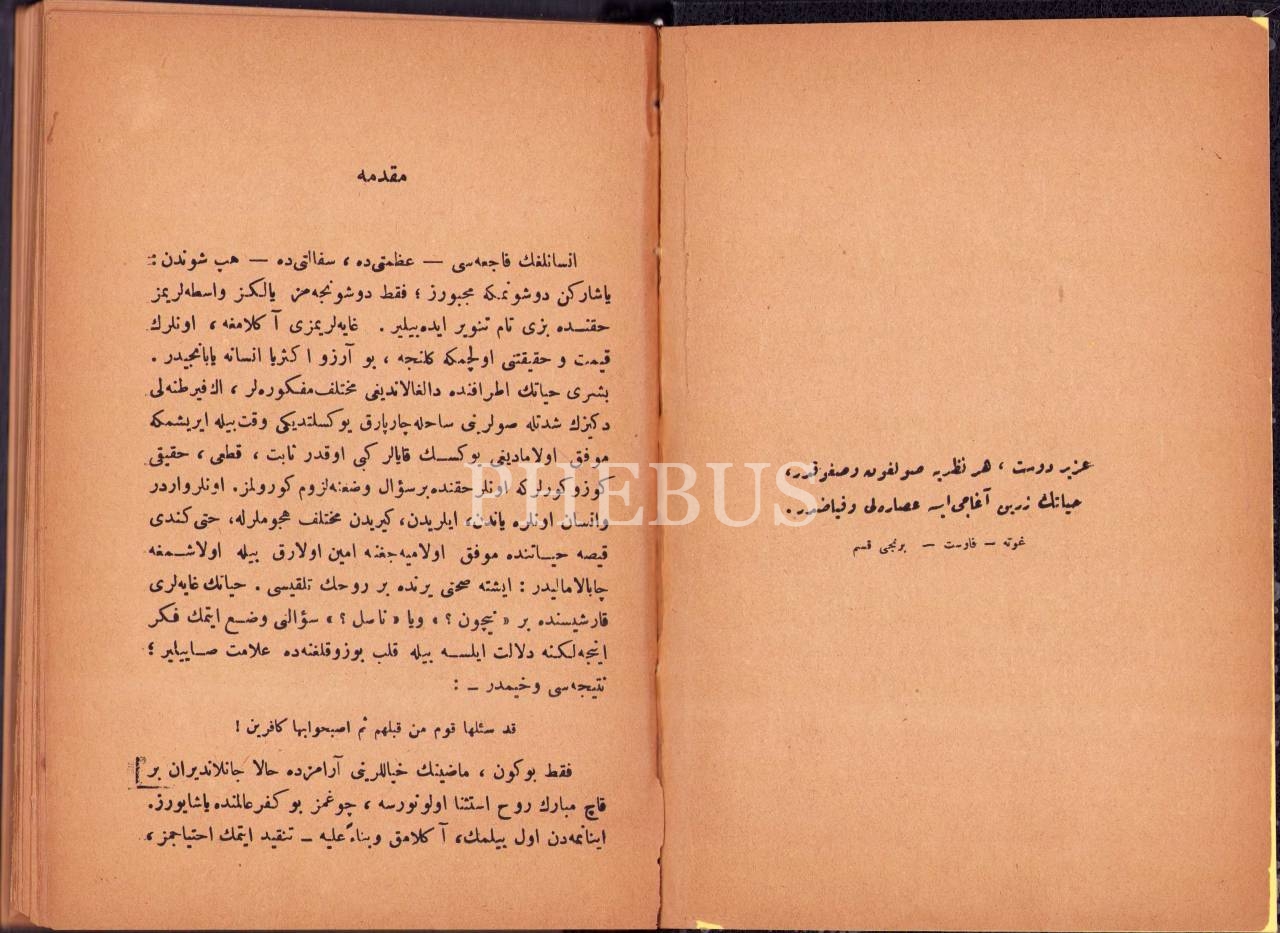 عزیز دوست ، هر نظریه صولغون وصغوقدر،
حیاتك زرین آغاجی ایسه عصاره‌لی وفیاضدر.
غوته — فاوست — برنجی قسم
مقدمه
انسانلغك فاجعه‌سی — عظمتی‌ده ، سفالتی‌ده — هپ شوندن :
یاشارکن دوشونمکه مجبورز ؛ فقط دوشونجه‌مز یالکز واسطه‌لریمز
حقنده بزی تام تنویر ایده‌بیلیر . غایه‌لریمزی آکلامغه ، اونلرك
قیمت و حقیقتنی اولچمکه کلنجه ، بو آرزو اکثریا انسانه یابانجیدر .
بشری حیاتك اطرافنده دالغالاندیغی مختلف مفکوره‌لر ، اك فیرطنه‌لی
دکیزك شدتله صولرینی ساحله چارپارق یوکسلتدیکی وقت بیله ایریشمکه
موفق اولامادیغی یوکسك قایالر کبی اوقدر ثابت ، قطعی ، حقیقی
کوزوکورلرکه اونلر حقنده بر سؤال وضعنه لزوم کورولمز. اونلر واردر
وانسان اونلره یاندن، ایلریدن، کیریدن مختلف هجوملرله، حتی کندی
قیصه حیاتنده موفق اولامیه‌جغنه امین اولارق بیله اولاشمغه
چابالامالیدر : ایشته صحتی یرنده بر روحك تلقیسی . حیاتك غایه‌لری
قارشیسنده بر « نیچون ؟ » ویا « ناصل ؟ » سؤالنی وضع ایتمك فکر
اینجه‌لکنه دلالت ایلسه بیله قلب بوزوقلغنه‌ده علامت صاییلیر ؛
نتیجه‌سی وخیمدر — :
قد سئلها قوم من قبلهم ثم اصبحوابها کافرین !
فقط بوکون ، ماضینك خیاللرینی آرامزده حالا جانلاندیران بر
قاچ مبارك روح استثنا اولونورسه ، چوغمز بو کفر عالمنده یاشایورز.
اینانمه‌دن اول بیلمك، آکلامق وبناءً علیه — تنقید ایتمك احتیاجمز ،
PHEBUS